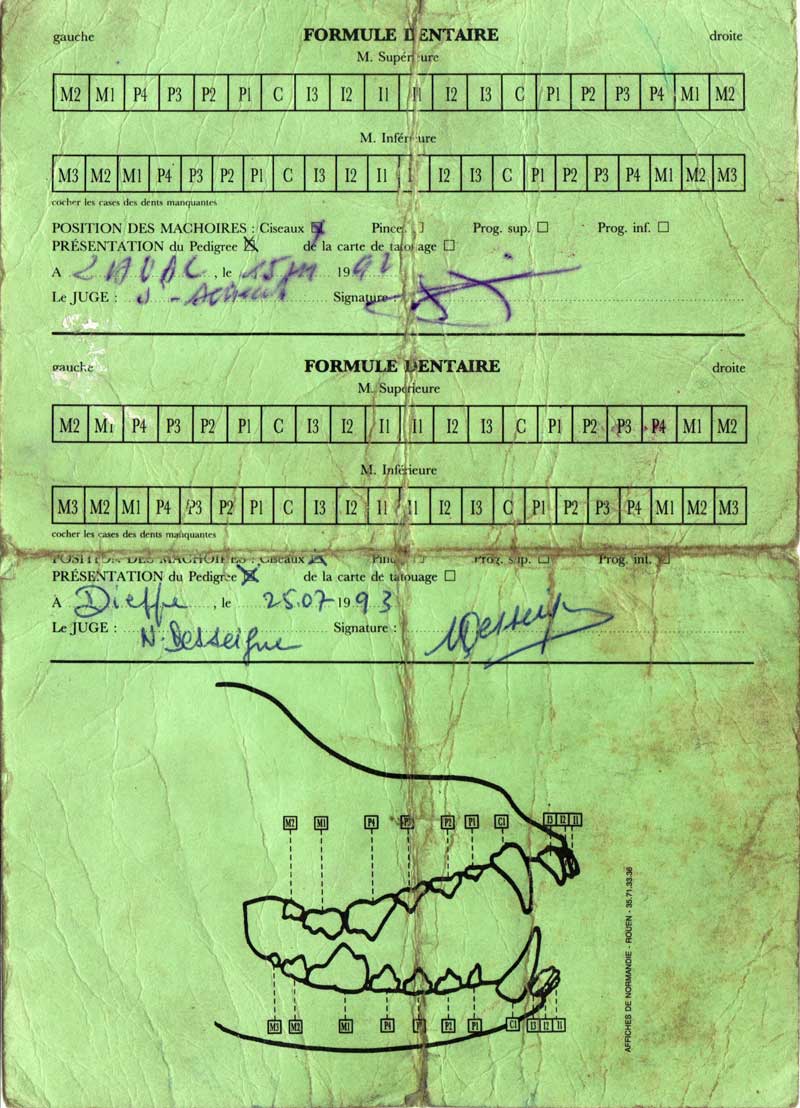 gauche FORMULE DENTAIRE droite
M. Supérieure
M2 M1 P4 P3 P2 P1 C I3 I2 I1 I1 I2 I3 C P1 P2 P3 P4 M1 M2
M. Inférieure
M3 M2 M1 P4 P3 P2 P1 C I3 I2 I1 I1 I2 I3 C P1 P2 P3 P4 M1 M2 M3
cocher les cases des dents manquantes
POSITION DES MACHOIRES : Ciseaux ☒ Pince ☐ Prog. sup. ☐ Prog. inf. ☐
PRÉSENTATION du Pedigree ☒ de la carte de tatouage ☐
A , le 19
Le JUGE : Signature
gauche FORMULE DENTAIRE droite
M. Supérieure
M2 M1 P4 P3 P2 P1 C I3 I2 I1 I1 I2 I3 C P1 P2 P3 P4 M1 M2
M. Inférieure
M3 M2 M1 P4 P3 P2 P1 C I3 I2 I1 I1 I2 I3 C P1 P2 P3 P4 M1 M2 M3
cocher les cases des dents manquantes
POSITION DES MACHOIRES : Ciseaux ☒ Pince ☐ Prog. sup. ☐ Prog. inf. ☐
PRÉSENTATION du Pedigree ☒ de la carte de tatouage ☐
À Dieppe , le 25.07 1993
Le JUGE : N. Desseigne Signature : NDesseigne
M2 M1 P4 P3 P2 P1 C1 I3 I2 I1
M3 M2 M1 P4 P2 P1 C1 I3 I2 I1
AFFICHES DE NORMANDIE - ROUEN - 35.71.33.36